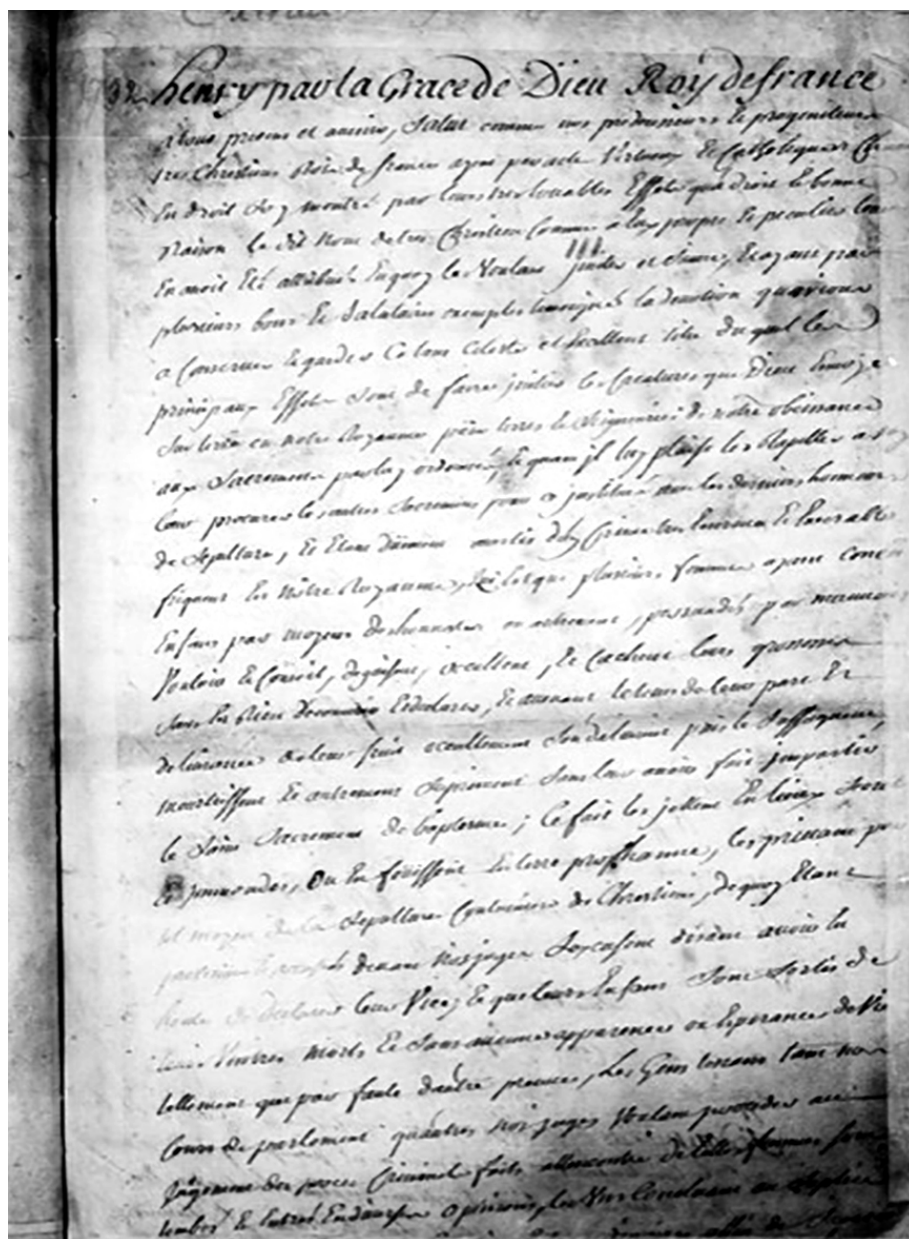 henry par la Grace de Dieu Roy de france
a tous presens et avenir, Salut comme nos predecesseurs et progeniteurs
tres Chrestiens Rois de france ayent par acte Vertueux Et Catholiques
En droit Et montré par leurs tres louables Effets que droit Et bonne
Raison le dit Nom de tres Chrestien Comme a Eux propre Et peculier
En avoit Eté attribué En quoy les Voulans et Suivre, Et ayans par
plusieurs bons Et Salutaires exemples temoigné la devotion qu'avions
a Conserver Et garder Ce tant Celeste et Excellent titre duquel les
principaux Effets Sont de faire les Creatures que Dieu Envoye
Sur terre en notre Royaume terres Et Seigneuries de notre obeissance
aux Sacremens par luy ordonnés, Et quand il luy plaise les Rapeller a soy
leur procurer les autres Sacremens pour ce institués avec les derniers honneurs
de Sepulture, Et Etans dûment avertis d'un Crime tres Enorme Et Execrable
frequent En Notre Royaume, qui Est que plusieurs femmes ayans conceu
Enfans par moyens deshonnetes ou autrement, persuadés par mauvais
Vouloir Et Conseil, deguisent, occultent, Et Cachent leurs grossesses
Sans En Rien decouvrir Et declarer, Et avenant le tems de leur part Et
delivrance de leur fruit occultement S'en delivrent puis le Suffoquent,
meurtrissent Et autrement Supriment Sans leur avoir fait impartir
le Saint Sacrement de baptesme; Ce fait les jettent En lieux Secrets
Et immondes, Ou En fouissent En terre prophanne, les privans par
tel moyen de la Sepulture Coutumiere de Chrestiens, de quoy Etans
devant Nos juges S'excusent disans avoir Eu
honte de declarer leur Vice, Et que leurs Enfans Sont Sortis de
leurs Ventres morts, Et Sans aucunes apparences ou Esperances de Vie
tellement que par faute d'autre preuve, Les Gens tenans tant nos
Cours de parlement qu'autres nos juges Voulans proceder au
jugement des proces Criminels faits a l'encontre de telles femmes Sont
tombés Et Entrés En diverses opinions, les Uns Concluans au Suplice